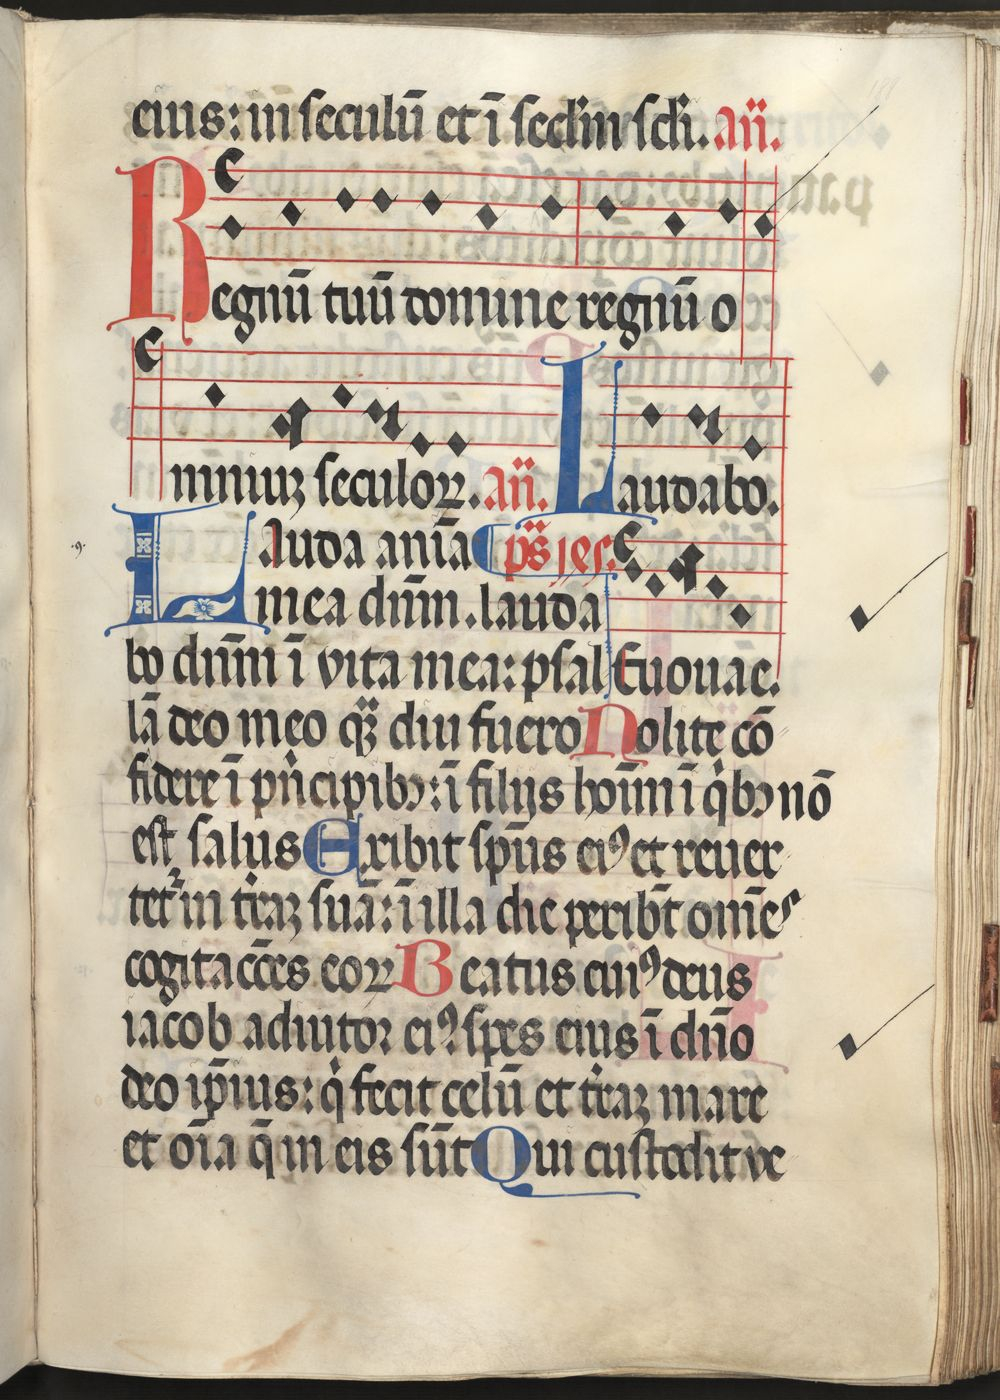 eius: in seculū et ī sc̄lm sc̄li. añ.
Regnū tuū domine regnū o
mniuꝫ seculoꝝ. añ. Laudabo.
Lauda anīa p̄s
mea dn̄m. lauda
bo dn̄m ī vita mea: psal Euouae.
lā deo meo qᷓꝫ diu fuero Nolite cō
fidere ī pͥncipibꝰ: ī filijs hoīnn ī qͥbꝰ nō
est salus Exibit spūs eiꝰ et reuer
tet᷑ in tᷓraꝫ suā: ī illa die peribt̄ om̄es
cogitac̄oēs eoꝝ Beatus cuiꝰ deus
iacob adiutoꝛ eiꝰ spes eius ī dn̄o
deo ip̄ius: qͥ fecit celū et tᷓraꝫ mare
et oīa q̄ in eis sūt Qui custodit ve
.9.